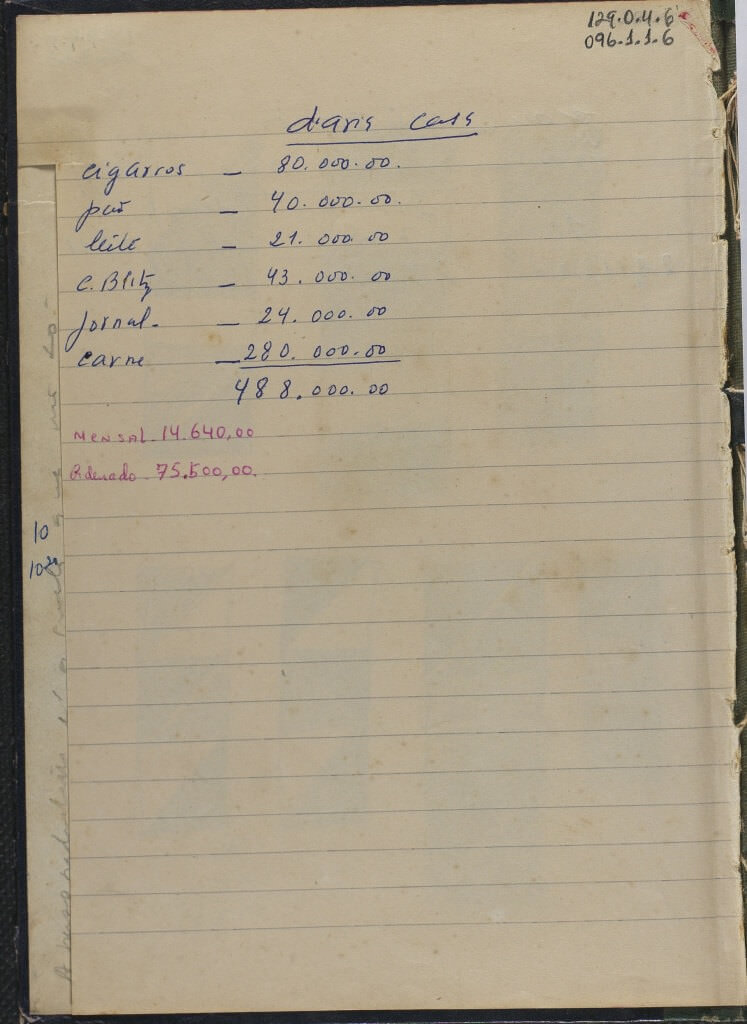 129.0.4.6
096.1.1.6
diario casa
cigarros — 80.000.00.
pão — 40.000.00.
leite — 21.000.00
C. Blitz — 43.000.00
Jornal. — 24.000.00
carne — 280.000.00
488.000.00
MENSAL. 14.640,00
Ordenado. 75.500,00.
10
10